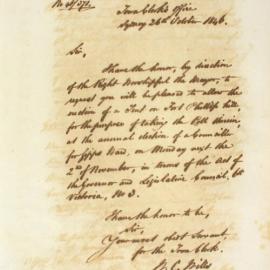 Town Clerk's Office
Sydney 26th October 1846.
Sir,
I have the honor, by direction
of the Right Worshipful the Mayor, to
request you will be pleased to allow the
erection of a Tent on Fort Phillip hill,
for the purpose of taking the Poll therein,
at the annual election of a Councillor
for Gipps Ward, on Monday next the
2nd of November, in terms of the Act of
the Governor and Legislative Council, 6th
Victoria, No 3.
I have the honor to be,
Sir,
Your most obdt Servant,
for the Town Clerk.